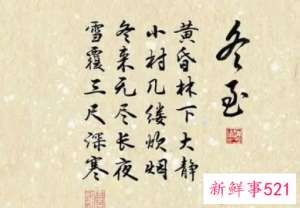 冬至
黄昏林下大静
小村几缕炊烟
冬来无尽长夜
雪覆三尺深寒
新鲜事521